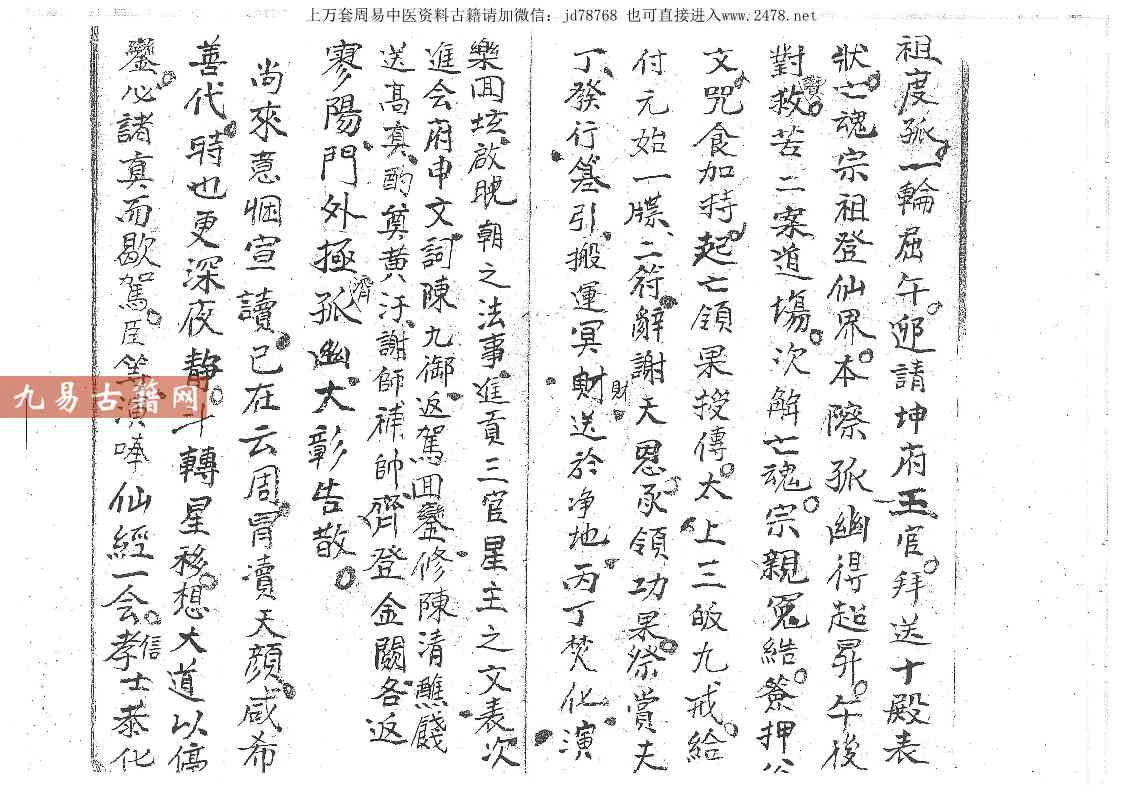 上万套周易中医资料古籍请加微信：jd78768 也可直接进入www.2478.net
祖度孤一輪屆午迎請坤府王官拜送十殿表
狀亡魂宗祖登仙界本際孤幽得超昇午後
對救苦二案道場次解亡魂宗親冤結簽押
文咒食加持起亡領果授傳太上三皈九戒給
付元始一牒二符辭謝天恩承領功果祭賞夫
丁發行篆引搬運冥財送於净地丙丁焚化演
財
樂回坛啟晚朝之法事進貢三官星主之文表次
進会府申文詞陳九御返駕回鑾修陳清醮餞
送高真酌奠黄汙謝師補帥齊登金闕各返
寥陽門外極孤幽大彰告散
尚來意悃宣讀已在云周冒瀆天顔咸希
善代時也更深夜静斗轉星移想大道以
鑾必諸真而歇駕臣等演唪仙經一会孝士恭化
信
九易古籍网